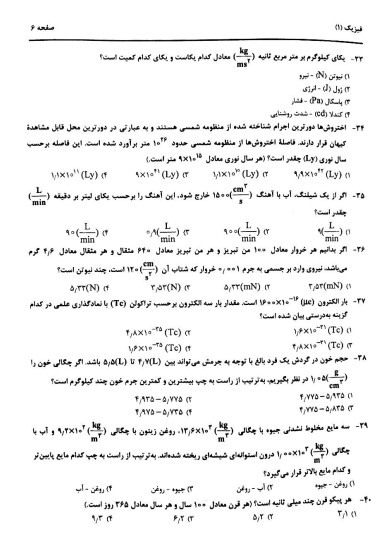 فیزیک (۱) صفحه ۶
۳۳- یکای کیلوگرم بر متر مربع ثانیه (kg/ms²) معادل کدام یکاست و یکای کدام کمیت است؟
۱) نیوتن (N) - نیرو
۲) ژول (J) - انرژی
۳) پاسکال (Pa) - فشار
۴) کندلا (cd) - شدت روشنایی
۳۴- اختروش‌ها دورترین اجرام شناخته شده از منظومه شمسی هستند و به عبارتی در دورترین محل قابل مشاهدهٔ
کیهان قرار دارند. فاصلهٔ اختروش‌ها از منظومه شمسی حدود ۱۰²⁶ متر برآورد شده است. این فاصله برحسب
سال نوری (Ly) چقدر است؟ (هر سال نوری معادل ۹×۱۰¹⁵ متر است.)
۱) ۹٫۹×۱۰⁴¹ (Ly) ۲) ۹×۱۰⁴¹ (Ly) ۳) ۱٫۱×۱۰¹⁰ (Ly) ۴) ۱٫۱×۱۰¹¹ (Ly)
۳۵- اگر از یک شیلنگ، آب با آهنگ ۱۵۰۰ (cm³/s) خارج شود، این آهنگ را برحسب یکای لیتر بر دقیقه (L/min)
چقدر است؟
۱) ۹ (L/min) ۲) ۹۰۰ (L/min) ۳) ۰٫۹ (L/min) ۴) ۹۰ (L/min)
۳۶- اگر بدانیم هر خروار معادل ۱۰۰ من تبریز و هر من تبریز معادل ۶۴۰ مثقال و هر مثقال معادل ۴٫۶ گرم
می‌باشد، نیروی وارد بر جسمی به جرم ۰٫۰۰۱ خروار که شتاب آن ۱۲۰ (cm/s²) است، چند نیوتن است؟
۱) ۳٫۵۳ (mN) ۲) ۳٫۵۳ (N) ۳) ۵٫۳۳ (mN) ۴) ۵٫۳۳ (N)
۳۷- بار الکترون ۱۶۰۰×۱۰⁻¹⁶ (μc) است. مقدار بار سه الکترون برحسب تراکولن (Tc) با نمادگذاری علمی در کدام
گزینه به‌درستی بیان شده است؟
۱) ۱٫۶×۱۰⁻³¹ (Tc) ۲) ۴٫۸×۱۰⁻²⁵ (Tc)
۳) ۴٫۸×۱۰⁻³¹ (Tc) ۴) ۱٫۶×۱۰⁻²⁵ (Tc)
۳۸- حجم خون در گردش یک فرد بالغ با توجه به جرمش می‌تواند بین ۴٫۷ (L) تا ۵٫۵ (L) باشد. اگر چگالی خون را
۱٫۰۵ (g/cm³) در نظر بگیریم، به‌ترتیب از راست به چپ بیشترین و کمترین جرم خون چند کیلوگرم است؟
۱) ۴٫۷۷۵ - ۵٫۹۳۵ ۲) ۴٫۹۳۵ - ۵٫۷۷۵
۳) ۴٫۷۷۵ - ۵٫۸۳۵ ۴) ۴٫۹۷۵ - ۵٫۷۳۵
۳۹- سه مایع مخلوط نشدنی جیوه با چگالی ۱۳٫۶×۱۰³ (kg/m³)، روغن زیتون با چگالی ۹٫۲×۱۰² (kg/m³) و آب با
چگالی ۱٫۰۰×۱۰³ (kg/m³) درون استوانه‌ای شیشه‌ای ریخته شده‌اند. به‌ترتیب از راست به چپ کدام مایع پایین‌تر
و کدام مایع بالاتر قرار می‌گیرد؟
۱) روغن - جیوه ۲) آب - روغن ۳) جیوه - روغن ۴) روغن - آب
۴۰- هر پیکو قرن چند میلی ثانیه است؟ (هر قرن معادل ۱۰۰ سال و هر سال معادل ۳۶۵ روز است.)
۱) ۳٫۱ ۲) ۵٫۲ ۳) ۶٫۲ ۴) ۹٫۳